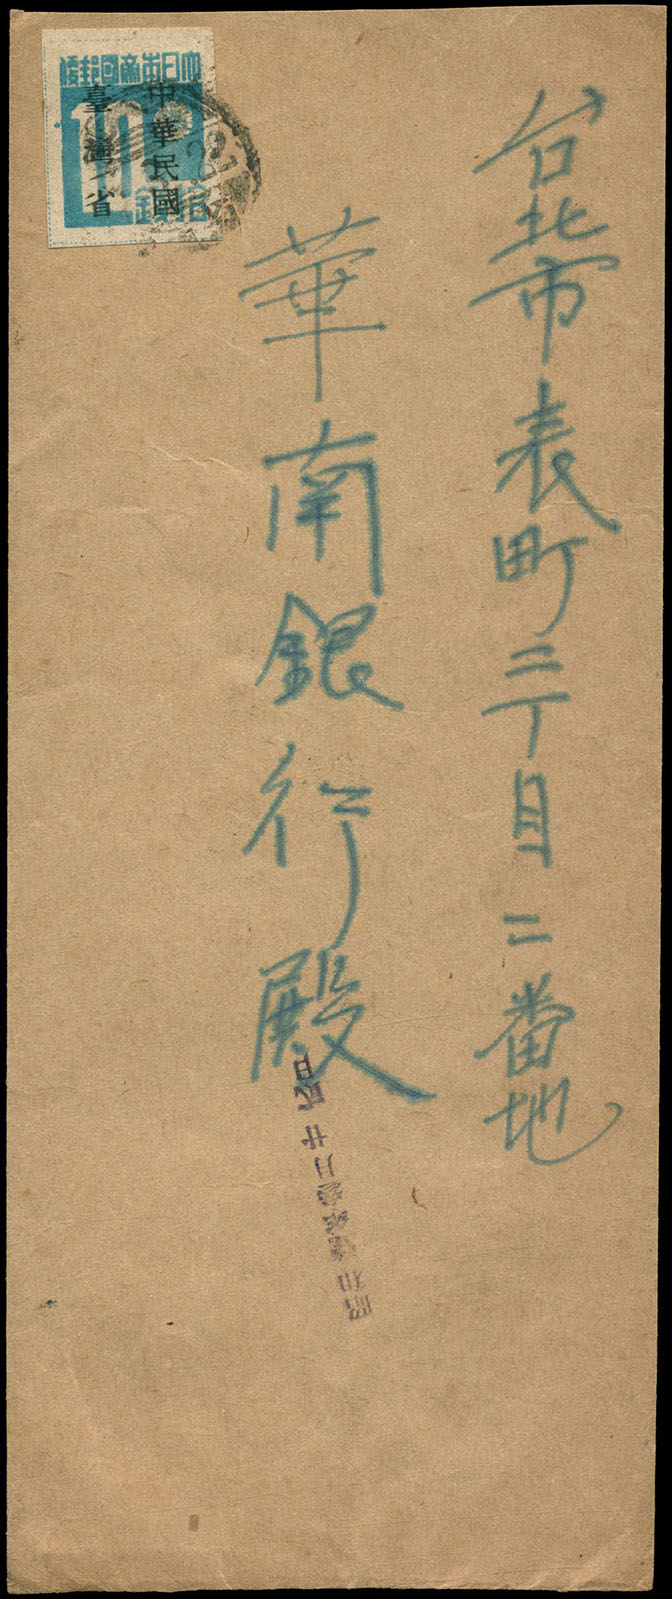 台北市表町二丁目二番地
華南銀行殿
大日本帝國郵便
10
拾錢
中華民國
臺灣省
昭和 月廿 日